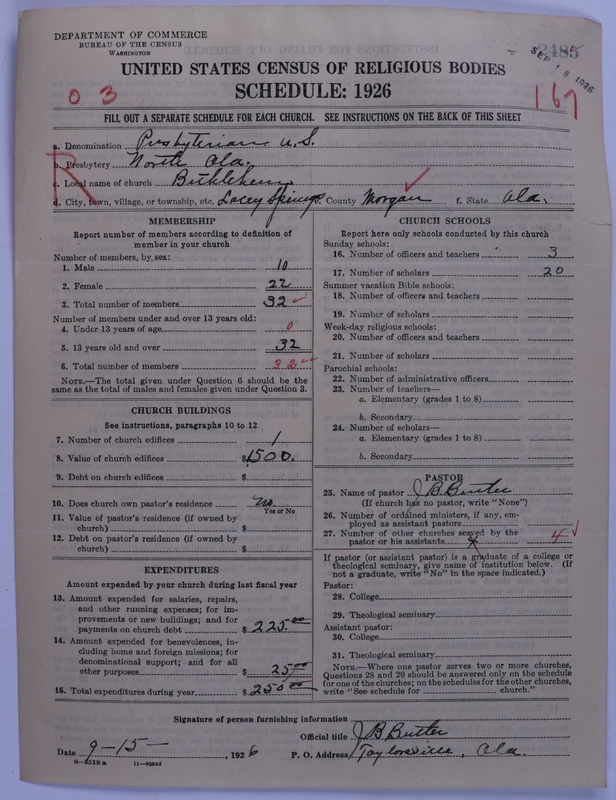 DEPARTMENT OF COMMERCE
BUREAU OF THE CENSUS
WASHINGTON
2485
SEP 18 1926
UNITED STATES CENSUS OF RELIGIOUS BODIES
SCHEDULE: 1926
0 3
167
FILL OUT A SEPARATE SCHEDULE FOR EACH CHURCH. SEE INSTRUCTIONS ON THE BACK OF THIS SHEET
a. Denomination Presbyterian U.S.
b. Presbytery North Ala.
R
c. Local name of church Bethlehem
d. City, town, village, or township, etc. Lacey Springs e. County Morgan f. State Ala.
MEMBERSHIP
Report number of members according to definition of
member in your church
Number of members, by sex:
1. Male 10
2. Female 22
3. Total number of members 32
Number of members under and over 13 years old:
4. Under 13 years of age 0
5. 13 years old and over 32
6. Total number of members 32
NOTE.—The total given under Question 6 should be the
same as the total of males and females given under Question 3.
CHURCH BUILDINGS
See instructions, paragraphs 10 to 12
7. Number of church edifices 1
8. Value of church edifices $1500.
9. Debt on church edifices $
10. Does church own pastor's residence No
Yes or No
11. Value of pastor's residence (if owned by
church) $
12. Debt on pastor's residence (if owned by
church) $
EXPENDITURES
Amount expended by your church during last fiscal year
13. Amount expended for salaries, repairs,
and other running expenses; for im-
provements or new buildings; and for
payments on church debt $ 225.00
14. Amount expended for benevolences, in-
cluding home and foreign missions; for
denominational support; and for all
other purposes $ 25.00
15. Total expenditures during year $ 250.00
CHURCH SCHOOLS
Report here only schools conducted by this church
Sunday schools:
16. Number of officers and teachers 3
17. Number of scholars 20
Summer vacation Bible schools:
18. Number of officers and teachers
19. Number of scholars
Week-day religious schools:
20. Number of officers and teachers
21. Number of scholars
Parochial schools:
22. Number of administrative officers
23. Number of teachers—
a. Elementary (grades 1 to 8)
b. Secondary
24. Number of scholars—
a. Elementary (grades 1 to 8)
b. Secondary
PASTOR
25. Name of pastor J B Butler
(If church has no pastor, write "None")
26. Number of ordained ministers, if any, em-
ployed as assistant pastors
27. Number of other churches served by the
pastor or his assistants 4 4
If pastor (or assistant pastor) is a graduate of a college or
theological seminary, give name of institution below. (If
not a graduate, write "No" in the space indicated.)
Pastor:
28. College
29. Theological seminary
Assistant pastor:
30. College
31. Theological seminary
NOTE.—Where one pastor serves two or more churches,
Questions 28 and 29 should be answered only on the schedule
for one of the churches; on the schedules for the other churches,
write "See schedule for church."
Signature of person furnishing information
Official title J B Butler
Date 9-15- 1926 P. O. Address Taylorsville, Ala.
8-5518a